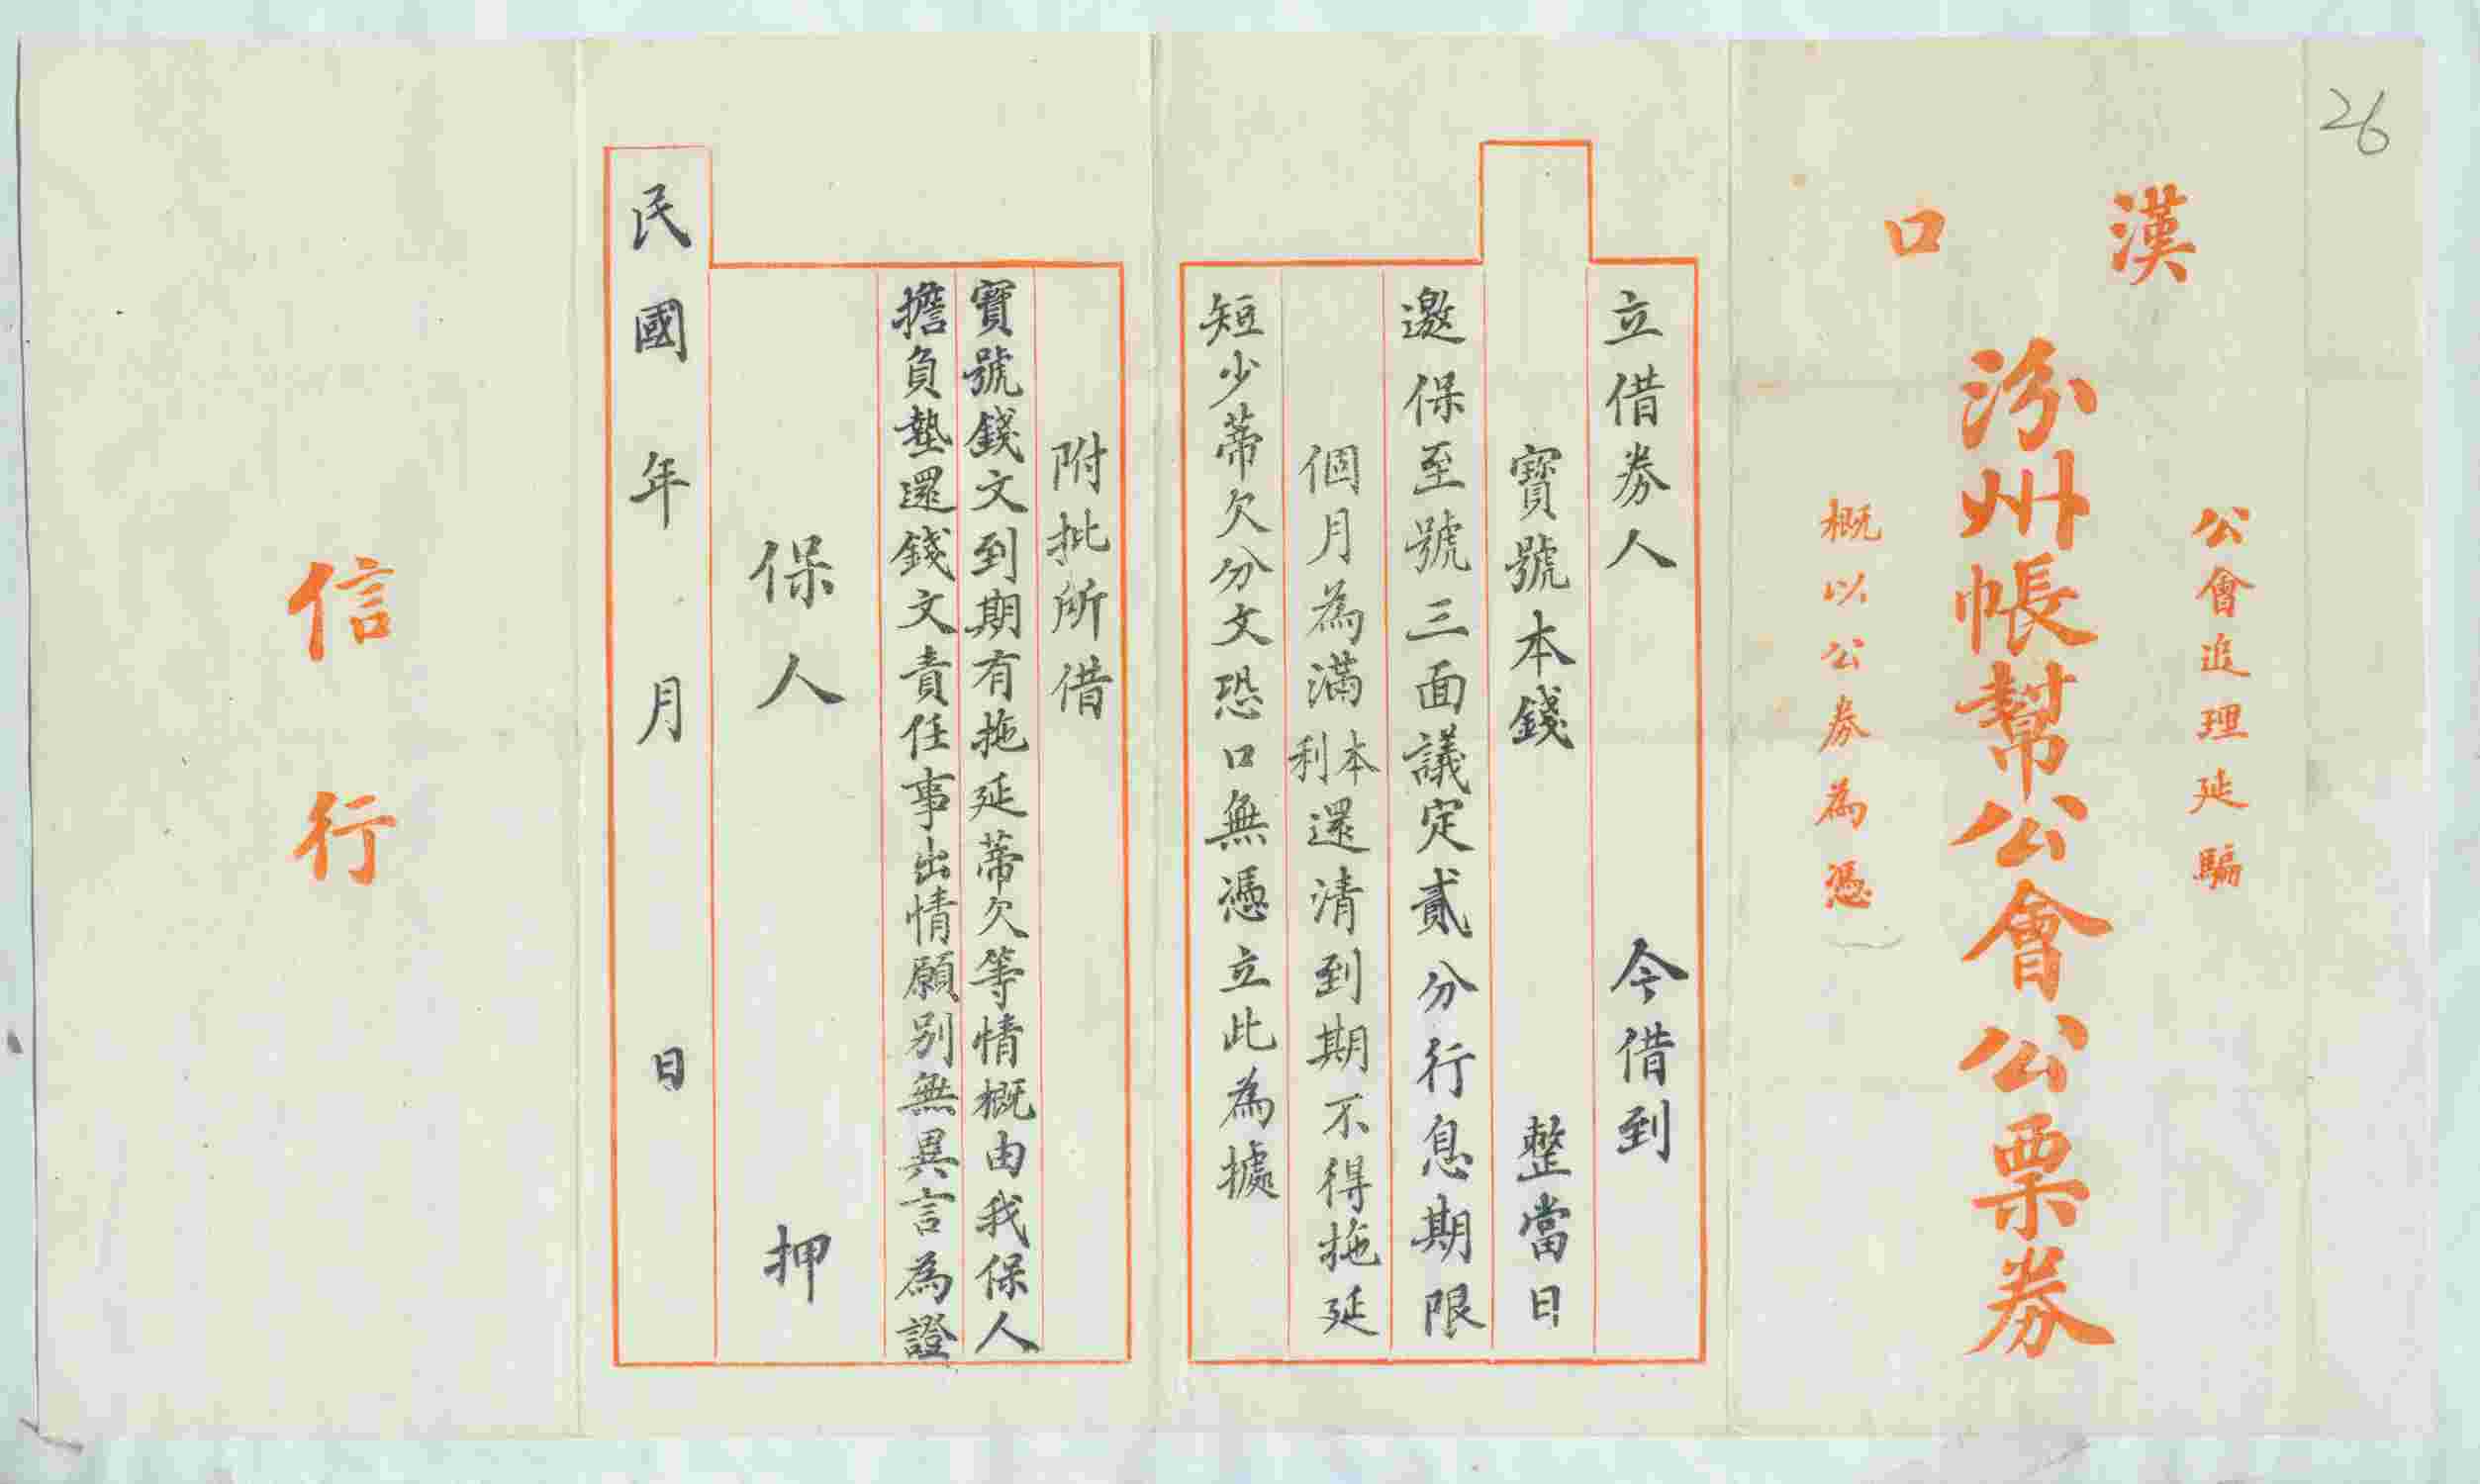 26
漢口
公會追理延騙
汾州帳幫公會公票券
概以公券為憑
立借券人 今借到
寶號本錢 整當日
邀保至號三面議定貳分行息期限
個月為滿本利還清到期不得拖延
短少蒂欠分文恐口無憑立此為據
附批所借
寶號錢文到期有拖延蒂欠等情概由我保人
擔負墊還錢文責任事出情願別無異言為證
保人 押
民國 年 月 日
信行